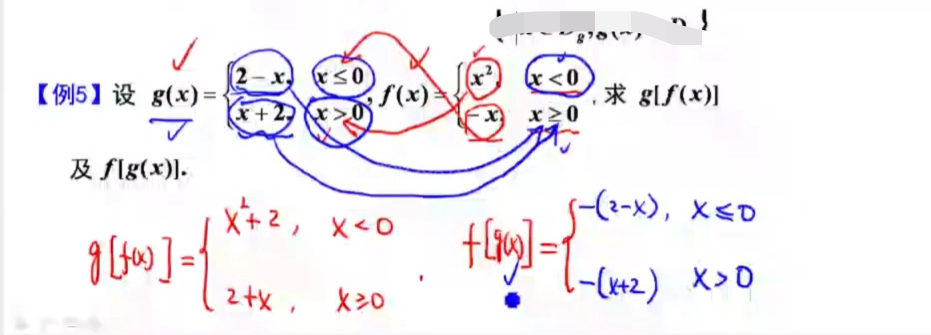 【例5】设 g(x)={2-x, x≤0
x+2, x>0, f(x)={x², x<0
-x, x≥0, 求 g[f(x)]
及 f[g(x)].
g[f(x)]={x²+2, x<0
2+x, x≥0
f[g(x)]={-(2-x), x≤0
-(x+2) x>0